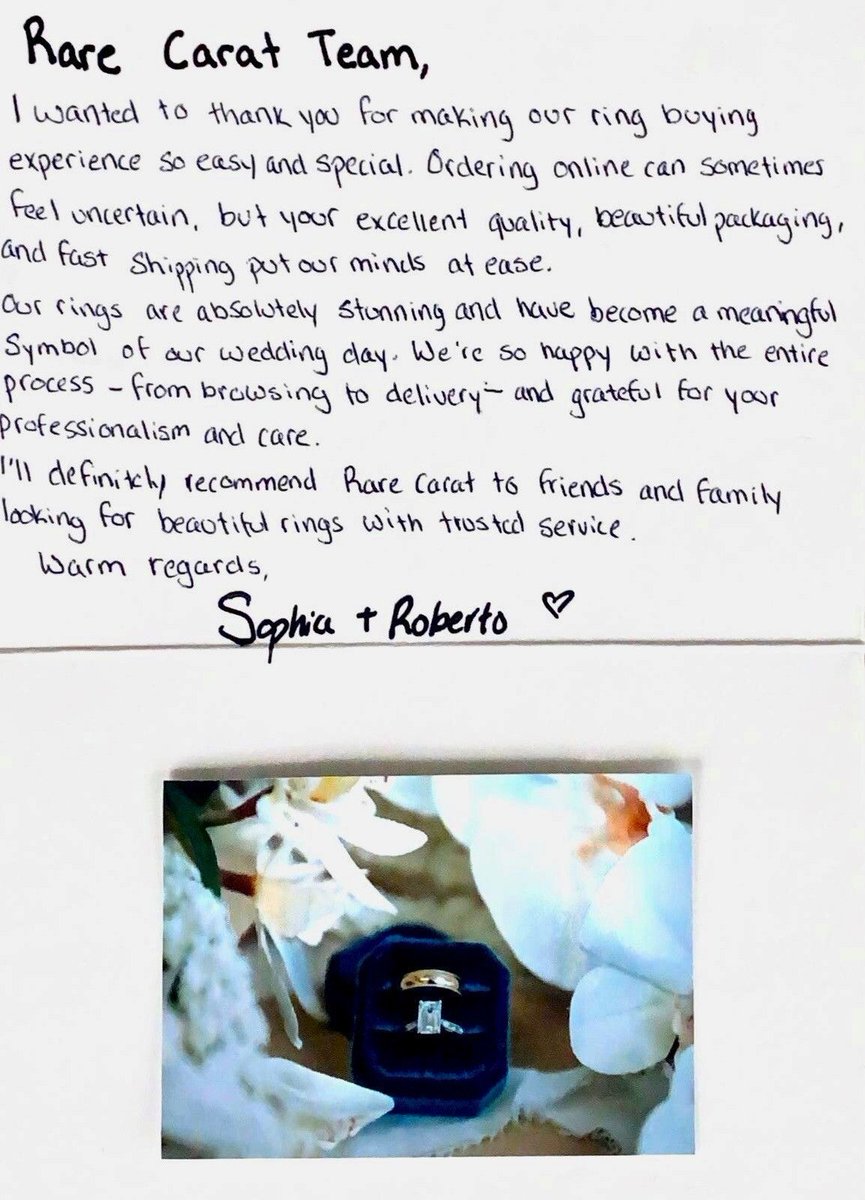 Rare Carat Team,
I wanted to thank you for making our ring buying
experience so easy and special. Ordering online can sometimes
feel uncertain, but your excellent quality, beautiful packaging,
and fast shipping put our minds at ease.
Our rings are absolutely stunning and have become a meaningful
symbol of our wedding day. We're so happy with the entire
process - from browsing to delivery - and grateful for your
professionalism and care.
I'll definitely recommend Rare Carat to friends and family
looking for beautiful rings with trusted service.
Warm regards,
Sophia + Roberto ♡